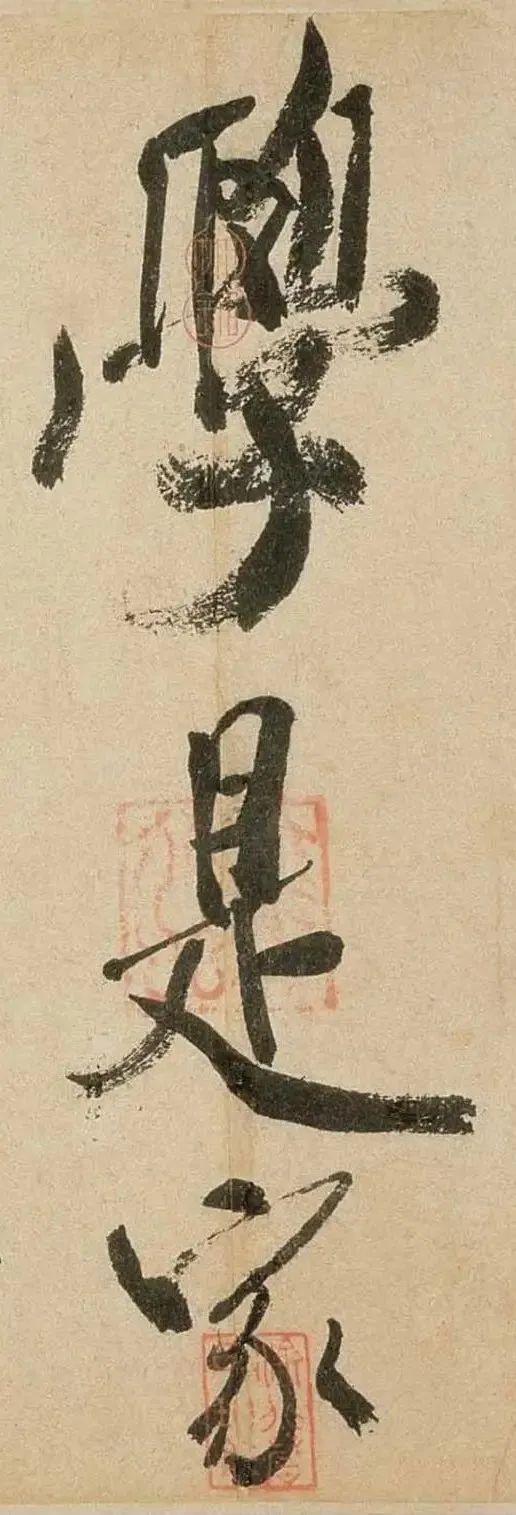 學是家